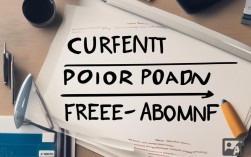 CURFENTT
POIOR POADN
FREEE-ABOMNF